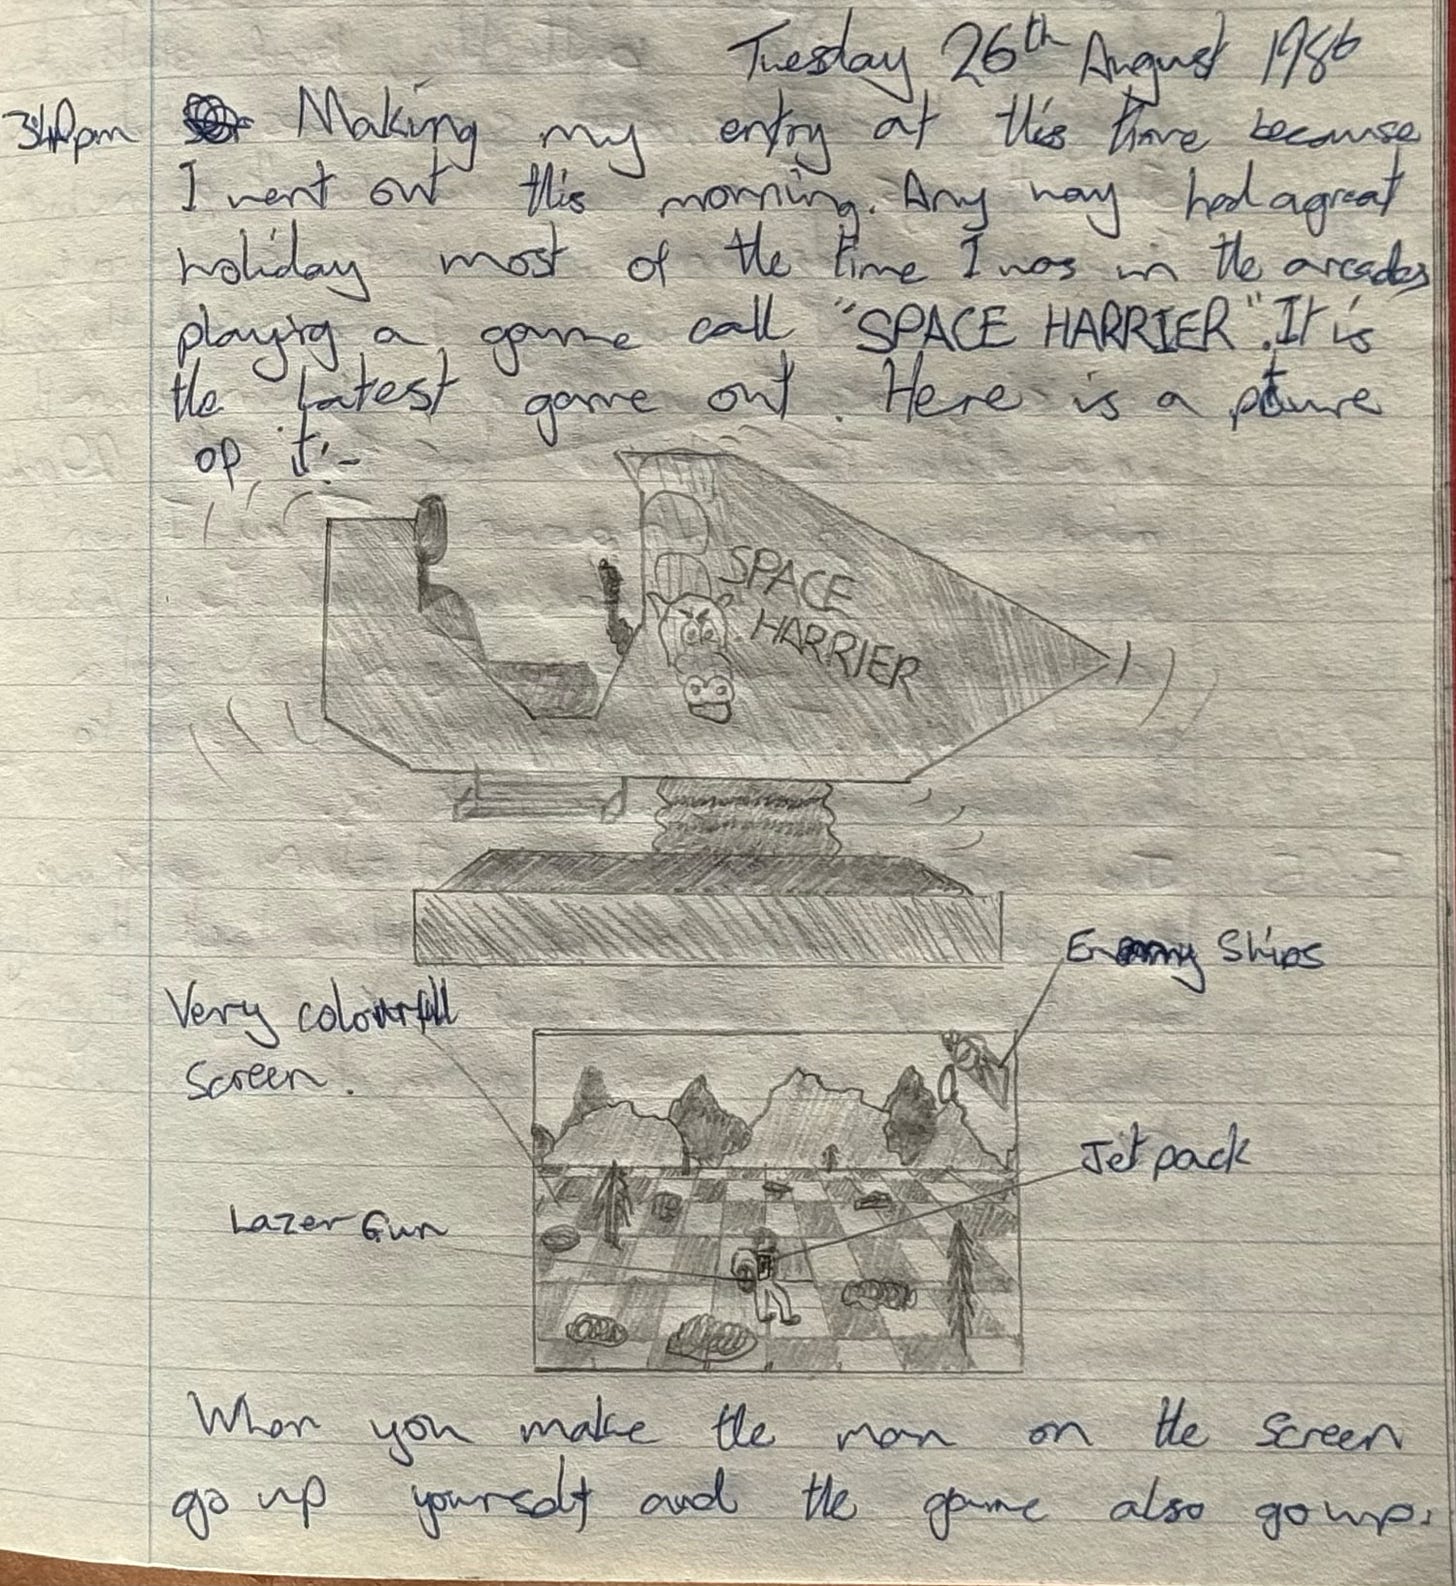 Tuesday 26th August 1986
3:40pm Making my entry at this time because
I went out this morning. Any way had a great
holiday most of the time I was in the arcades
playing a game call "SPACE HARRIER". It is
the Latest game out. Here is a pture
op it:-
SPACE
HARRIER
Enemy Ships
Very colourfull
Screen.
Jet pack
Lazer Gun
When you make the man on the screen
go up yourself and the game also go up.